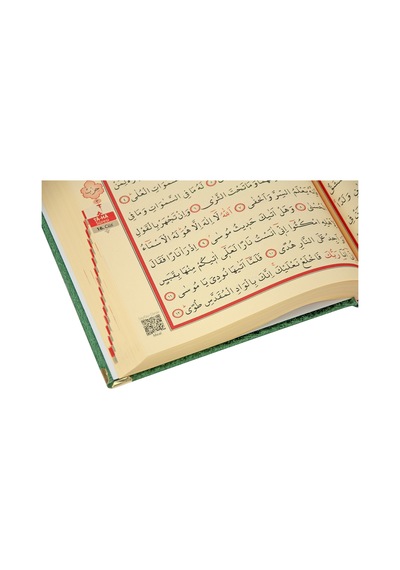 السَّمٰوَاتِ الْعُلٰى
لَهُ مَا فِى السَّمٰوَاتِ وَمَا فِى
وَمَا بَيْنَهُمَا وَمَا تَحْتَ الثَّرٰى وَاِنْ تَجْهَرْ بِالْقَوْلِ
يَعْلَمُ السِّرَّ وَاَخْفٰى اَللّٰهُ لَٓا اِلٰهَ اِلَّا هُوَ لَهُ الْاَسْمَٓاءُ
وَهَلْ اَتٰيكَ حَدِيثُ مُوسٰى اِذْ رَاٰ نَارًا فَقَالَ
امْكُثُٓوا اِنِّٓى اٰنَسْتُ نَارًا لَعَلِّٓى اٰتِيكُمْ مِنْهَا بِقَبَسٍ
اَجِدُ عَلَى النَّارِ هُدًى فَلَمَّٓا اَتٰيهَا نُودِىَ يَا مُوسٰى
اَنَا۬ رَبُّكَ فَاخْلَعْ نَعْلَيْكَ اِنَّكَ بِالْوَادِ الْمُقَدَّسِ طُوًى
TÂ-HÂ
16. CÜZ